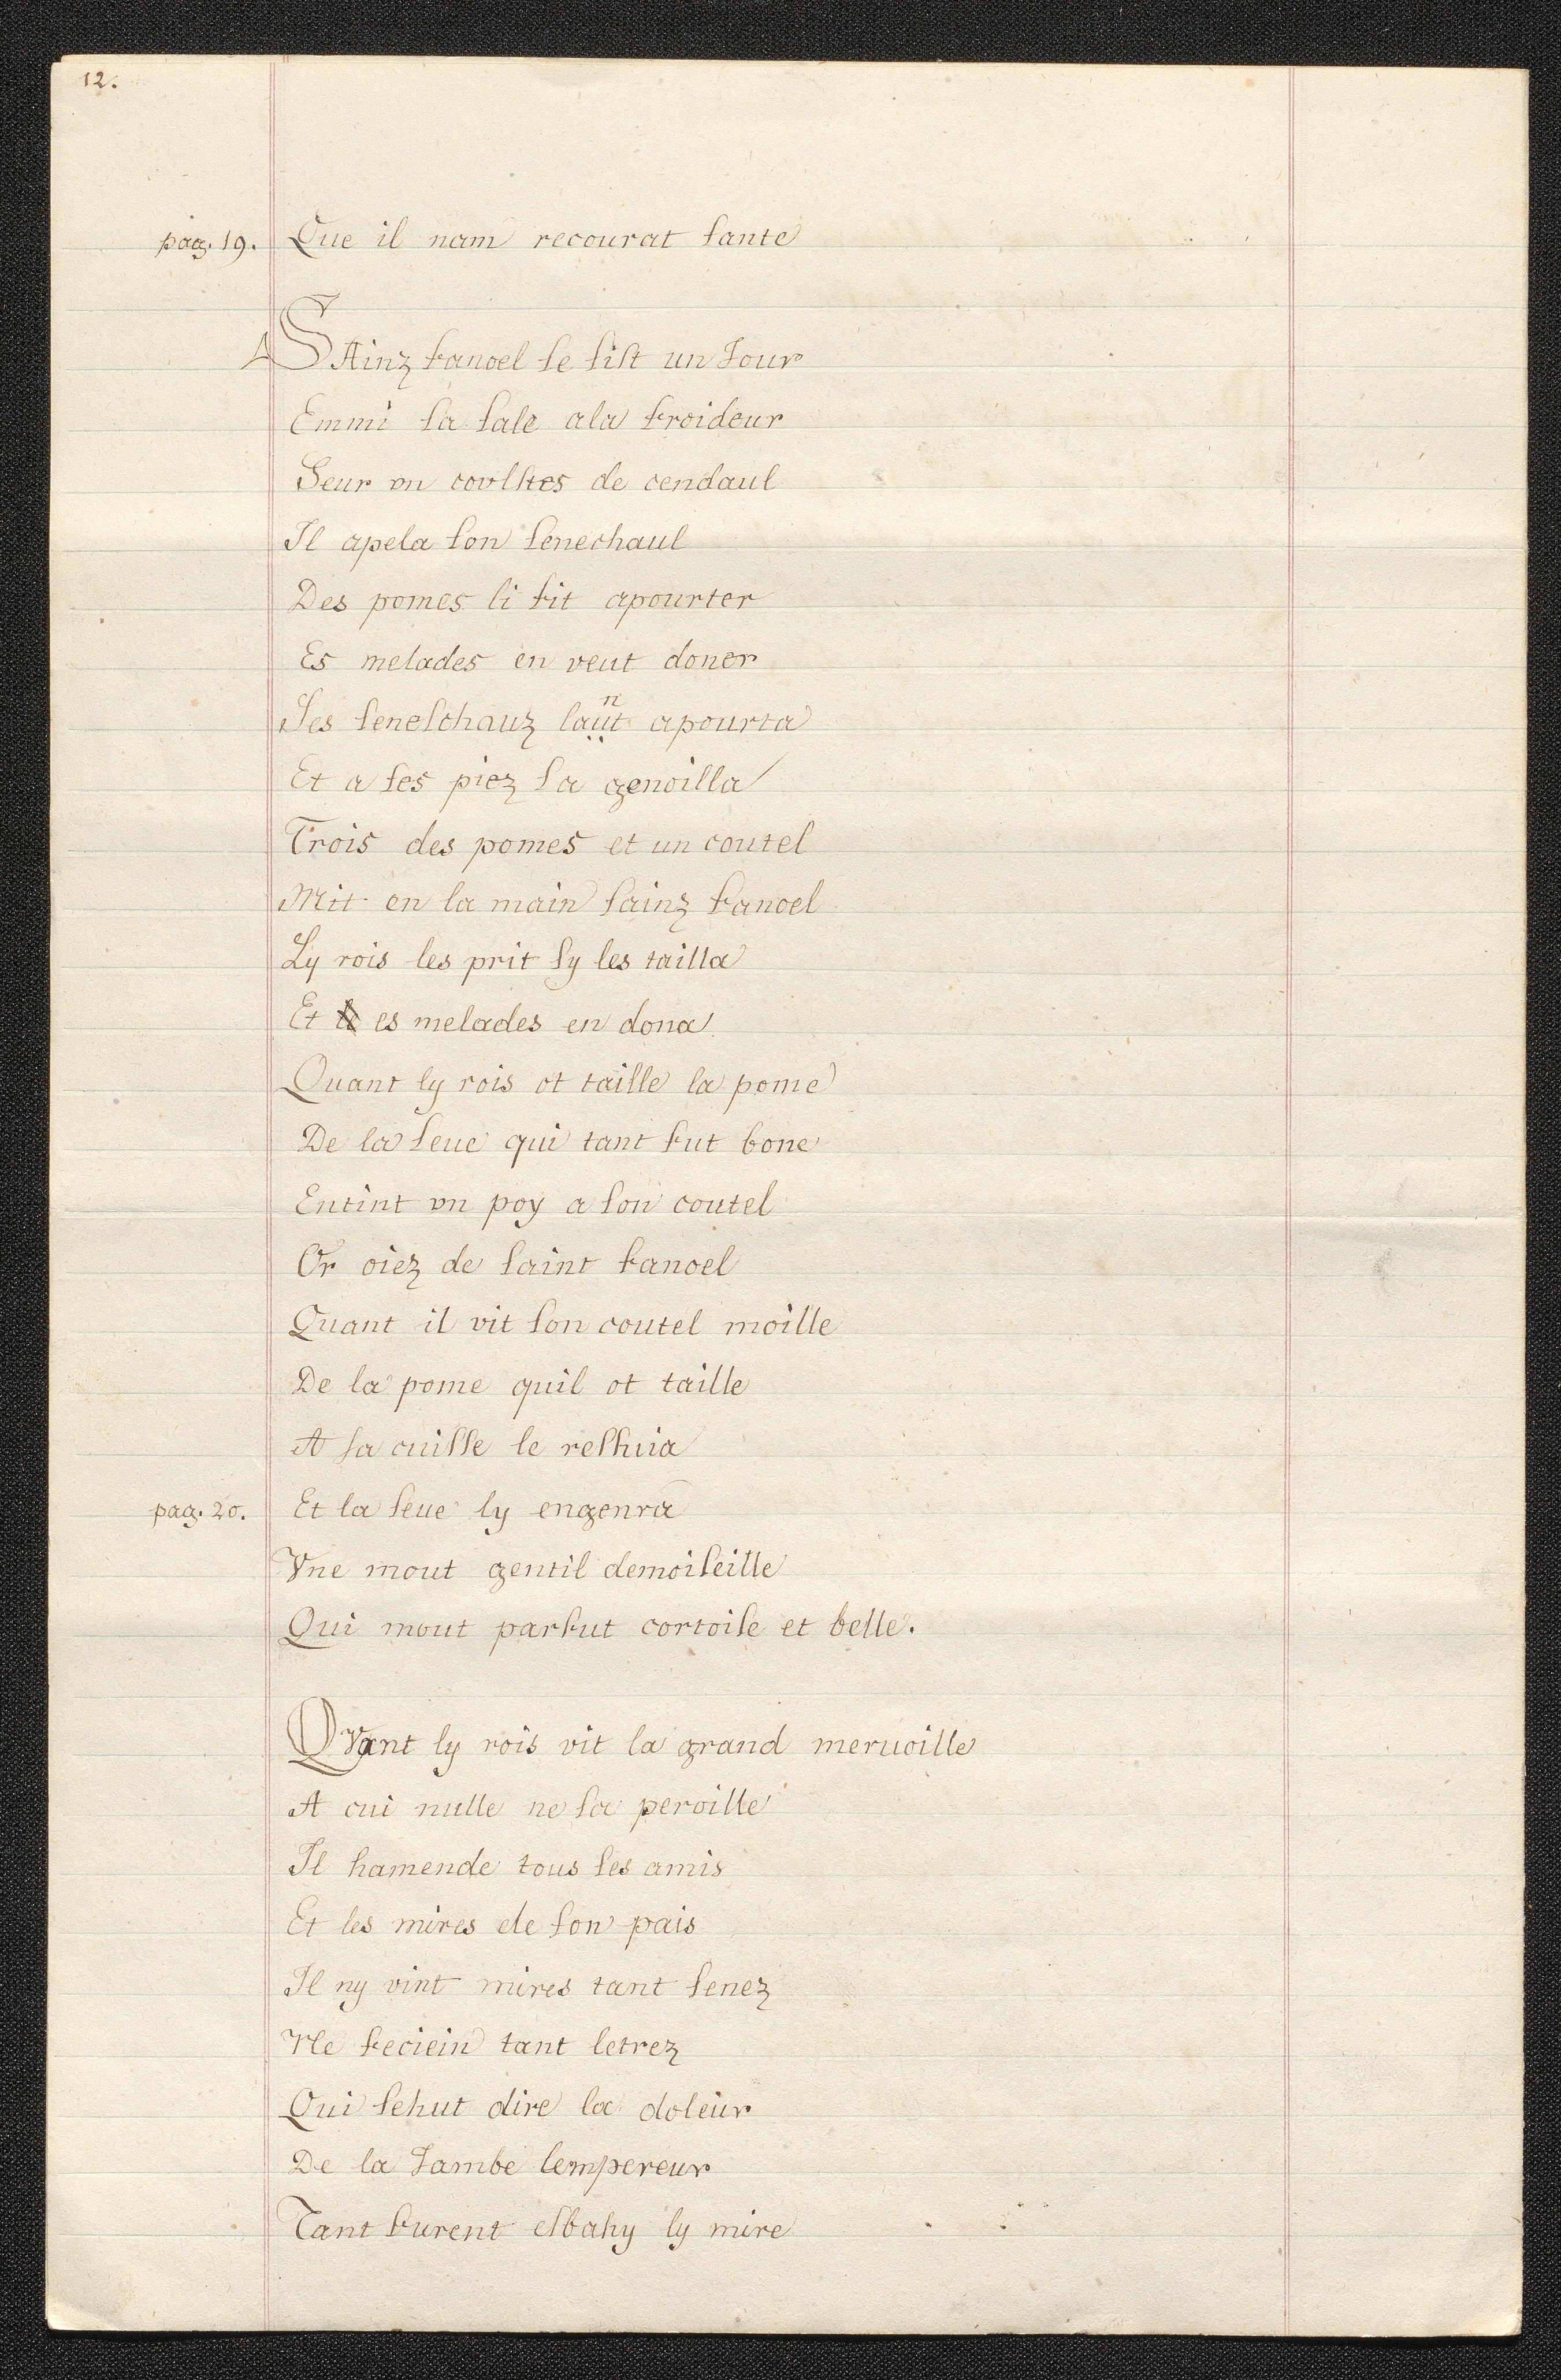 12.
pag. 19. Que il nam recourat ſante
SAinz fanoel ſe ſiſt un Jour
Emmi ſa ſale ala froideur
Seur vn covlſtes de cendaul
Il apela ſon ſenechaul
Des pomes li fit apourter
Es melades en veut doner
Ses ſeneſchauz laut apourta
n
Et a ſes piez ſa genoilla
Trois des pomes et un coutel
Mit en la main ſainz fanoel
Ly rois les prit ſy les tailla
Et es melades en dona
Quant ly rois ot taille la pome
De la ſeue qui tant fut bone
Entint vn poy a ſon coutel
Or oiez de ſaint fanoel
Quant il vit ſon coutel moille
De la pome quil ot taille
A ſa cuiſſe le reſſuia
pag. 20. Et la ſeue ly engenra
Vne mout gentil demoiſeille
Qui mout parfut cortoiſe et belle.
QVant ly rois vit la grand meruoille
A cui nulle ne ſa peroille
Il hamende tous ſes amis
Et les mires de ſon pais
Il ny vint mires tant ſenez
Ne feciein tant letrez
Qui ſehut dire la doleur
De la Jambe lempereur
Tant furent eſbahy ly mire